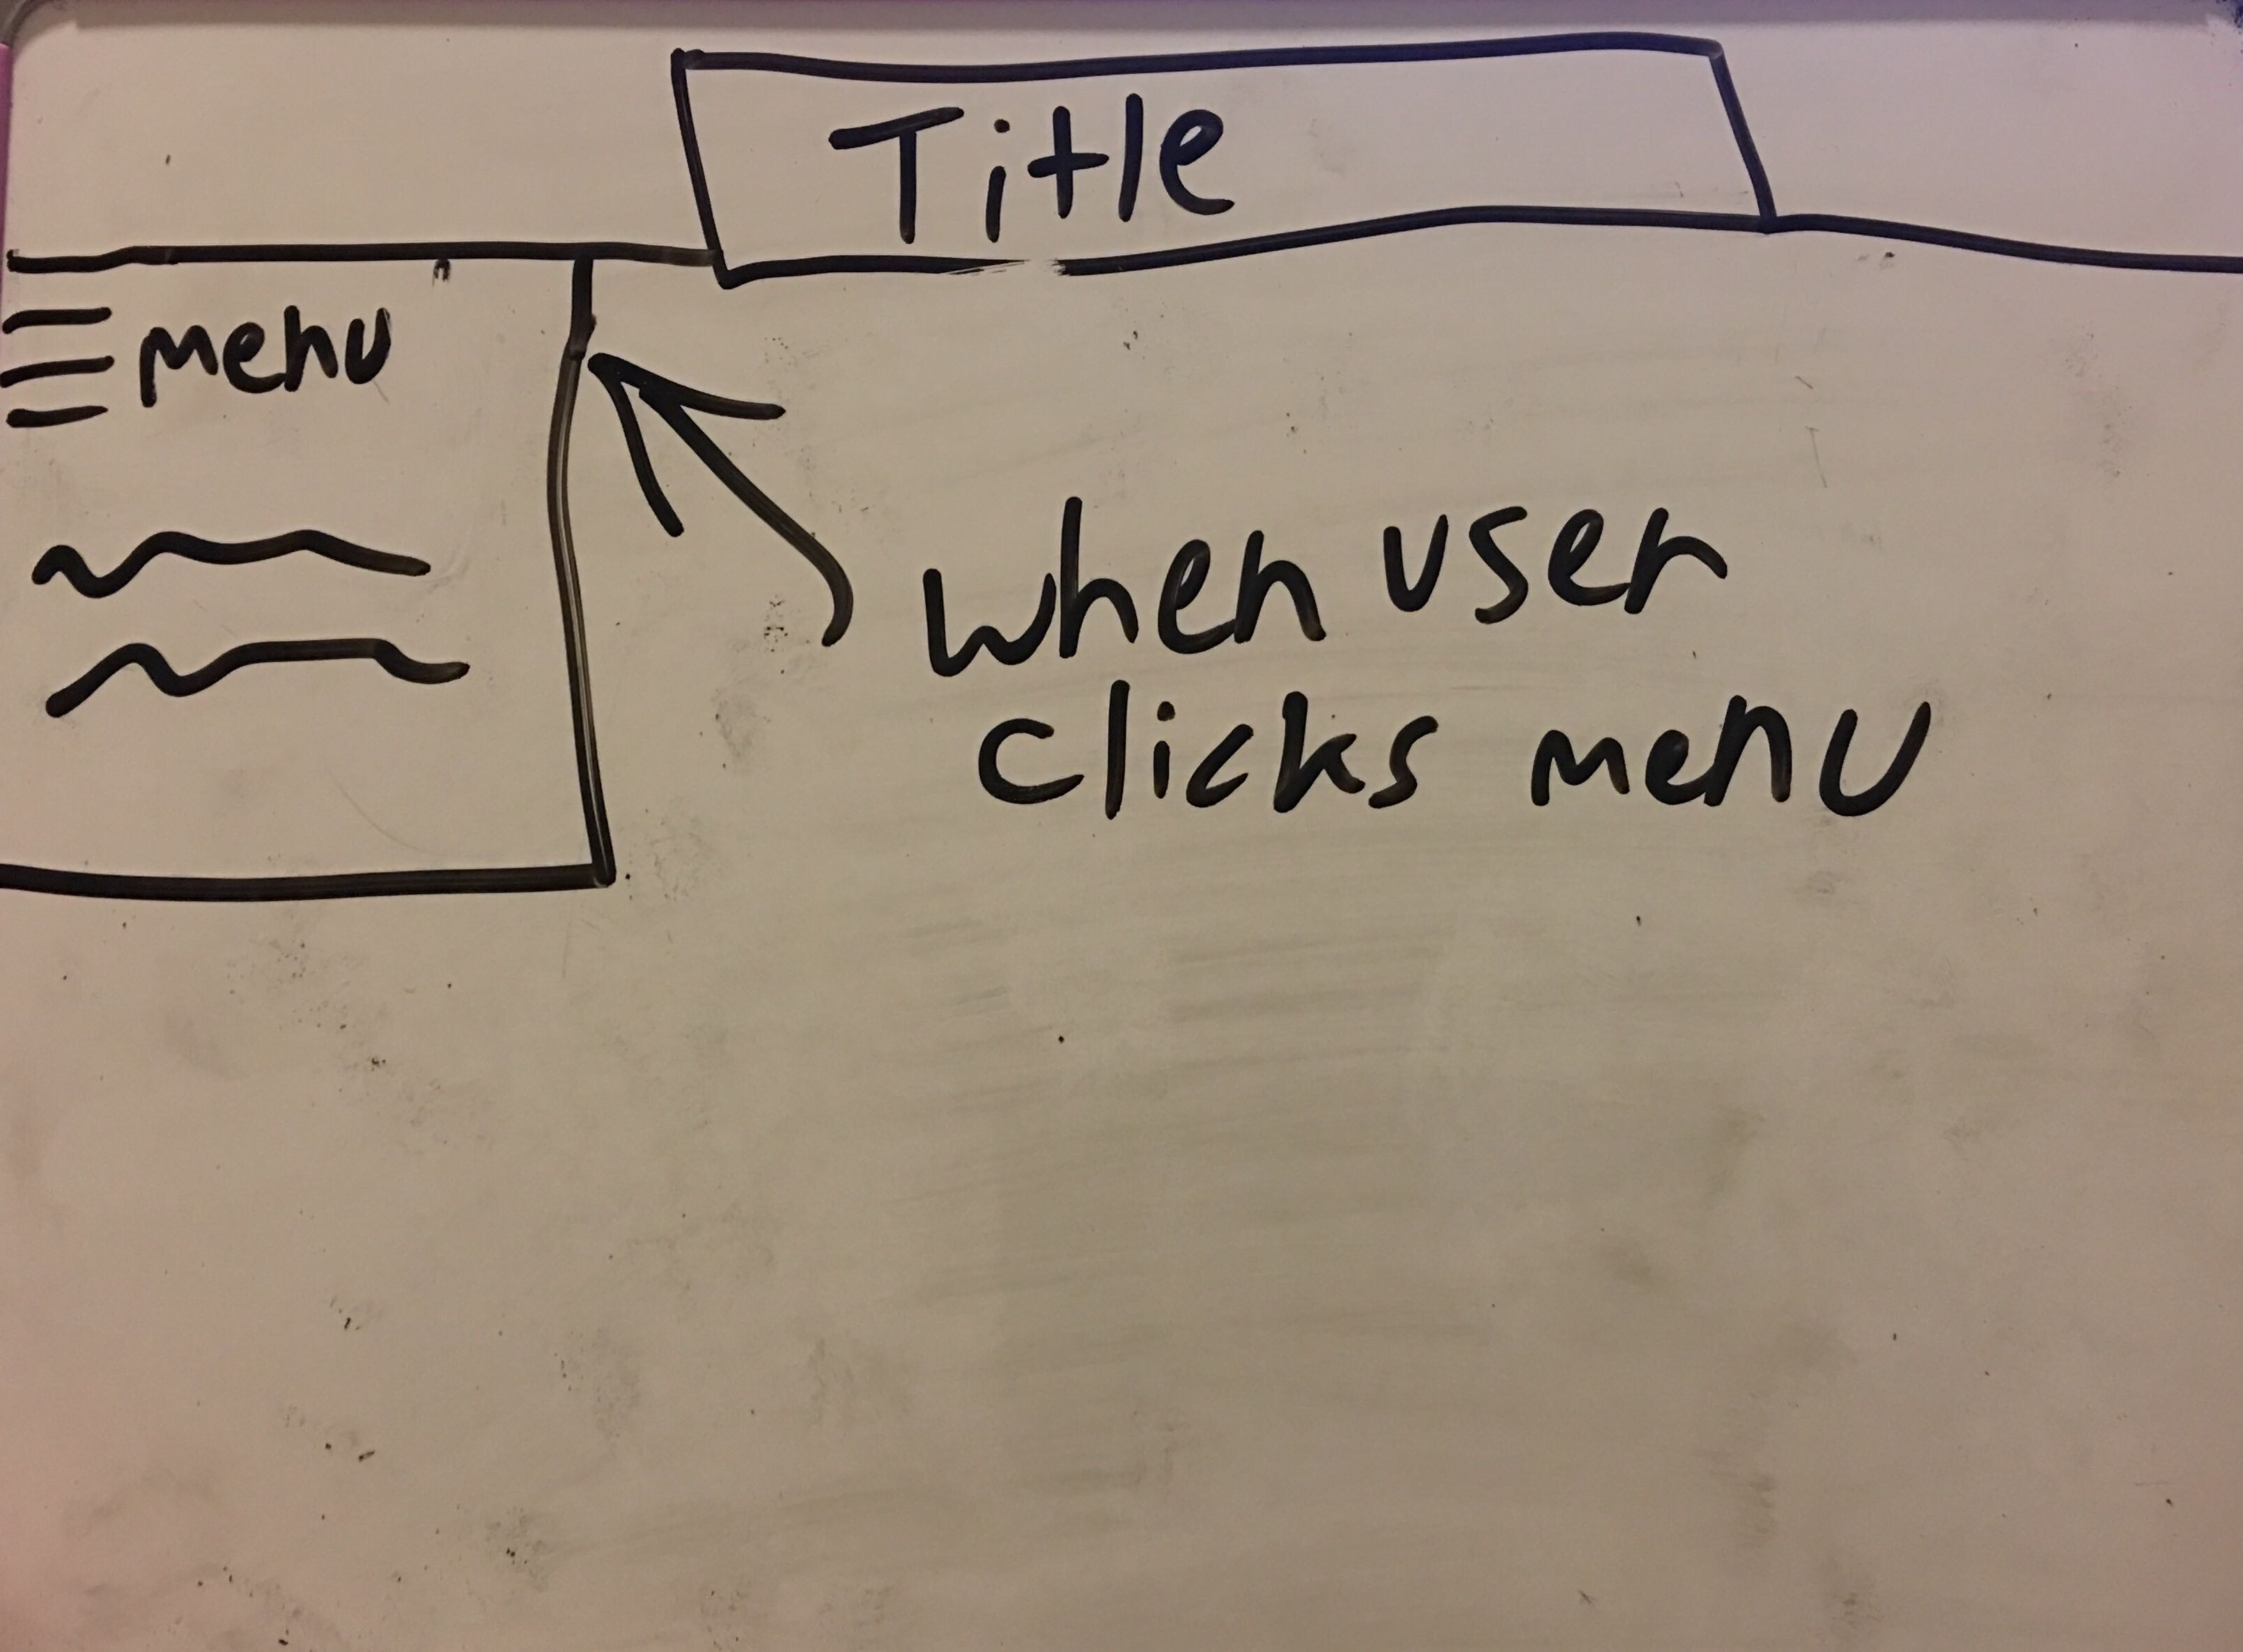 Title
menu
when user
clicks menu